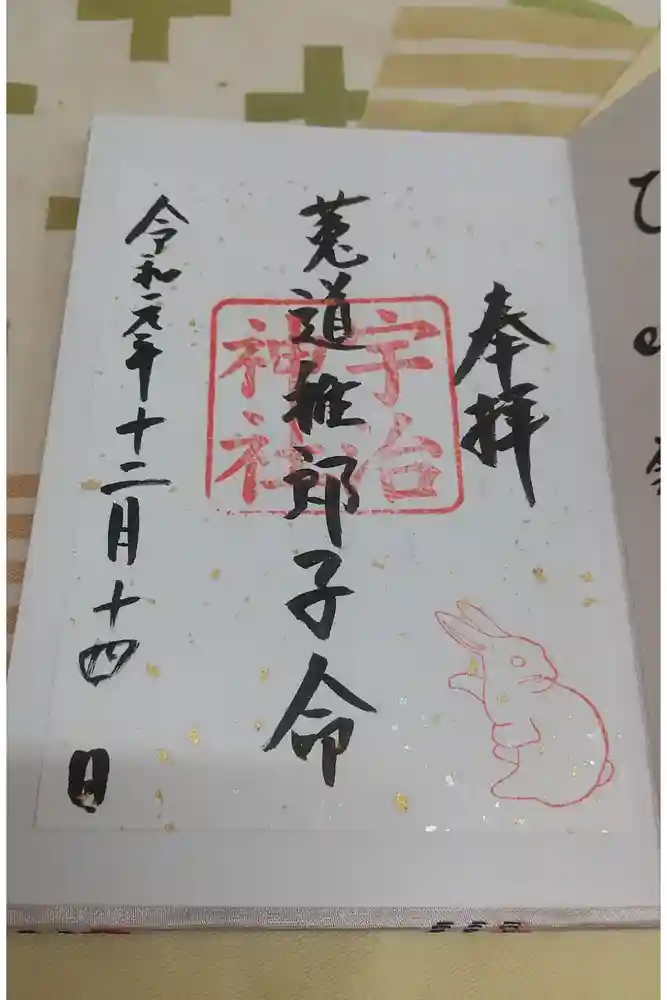 奉拝
菟道稚郎子命
宇治
神社
令和元年十二月十四日
ひ